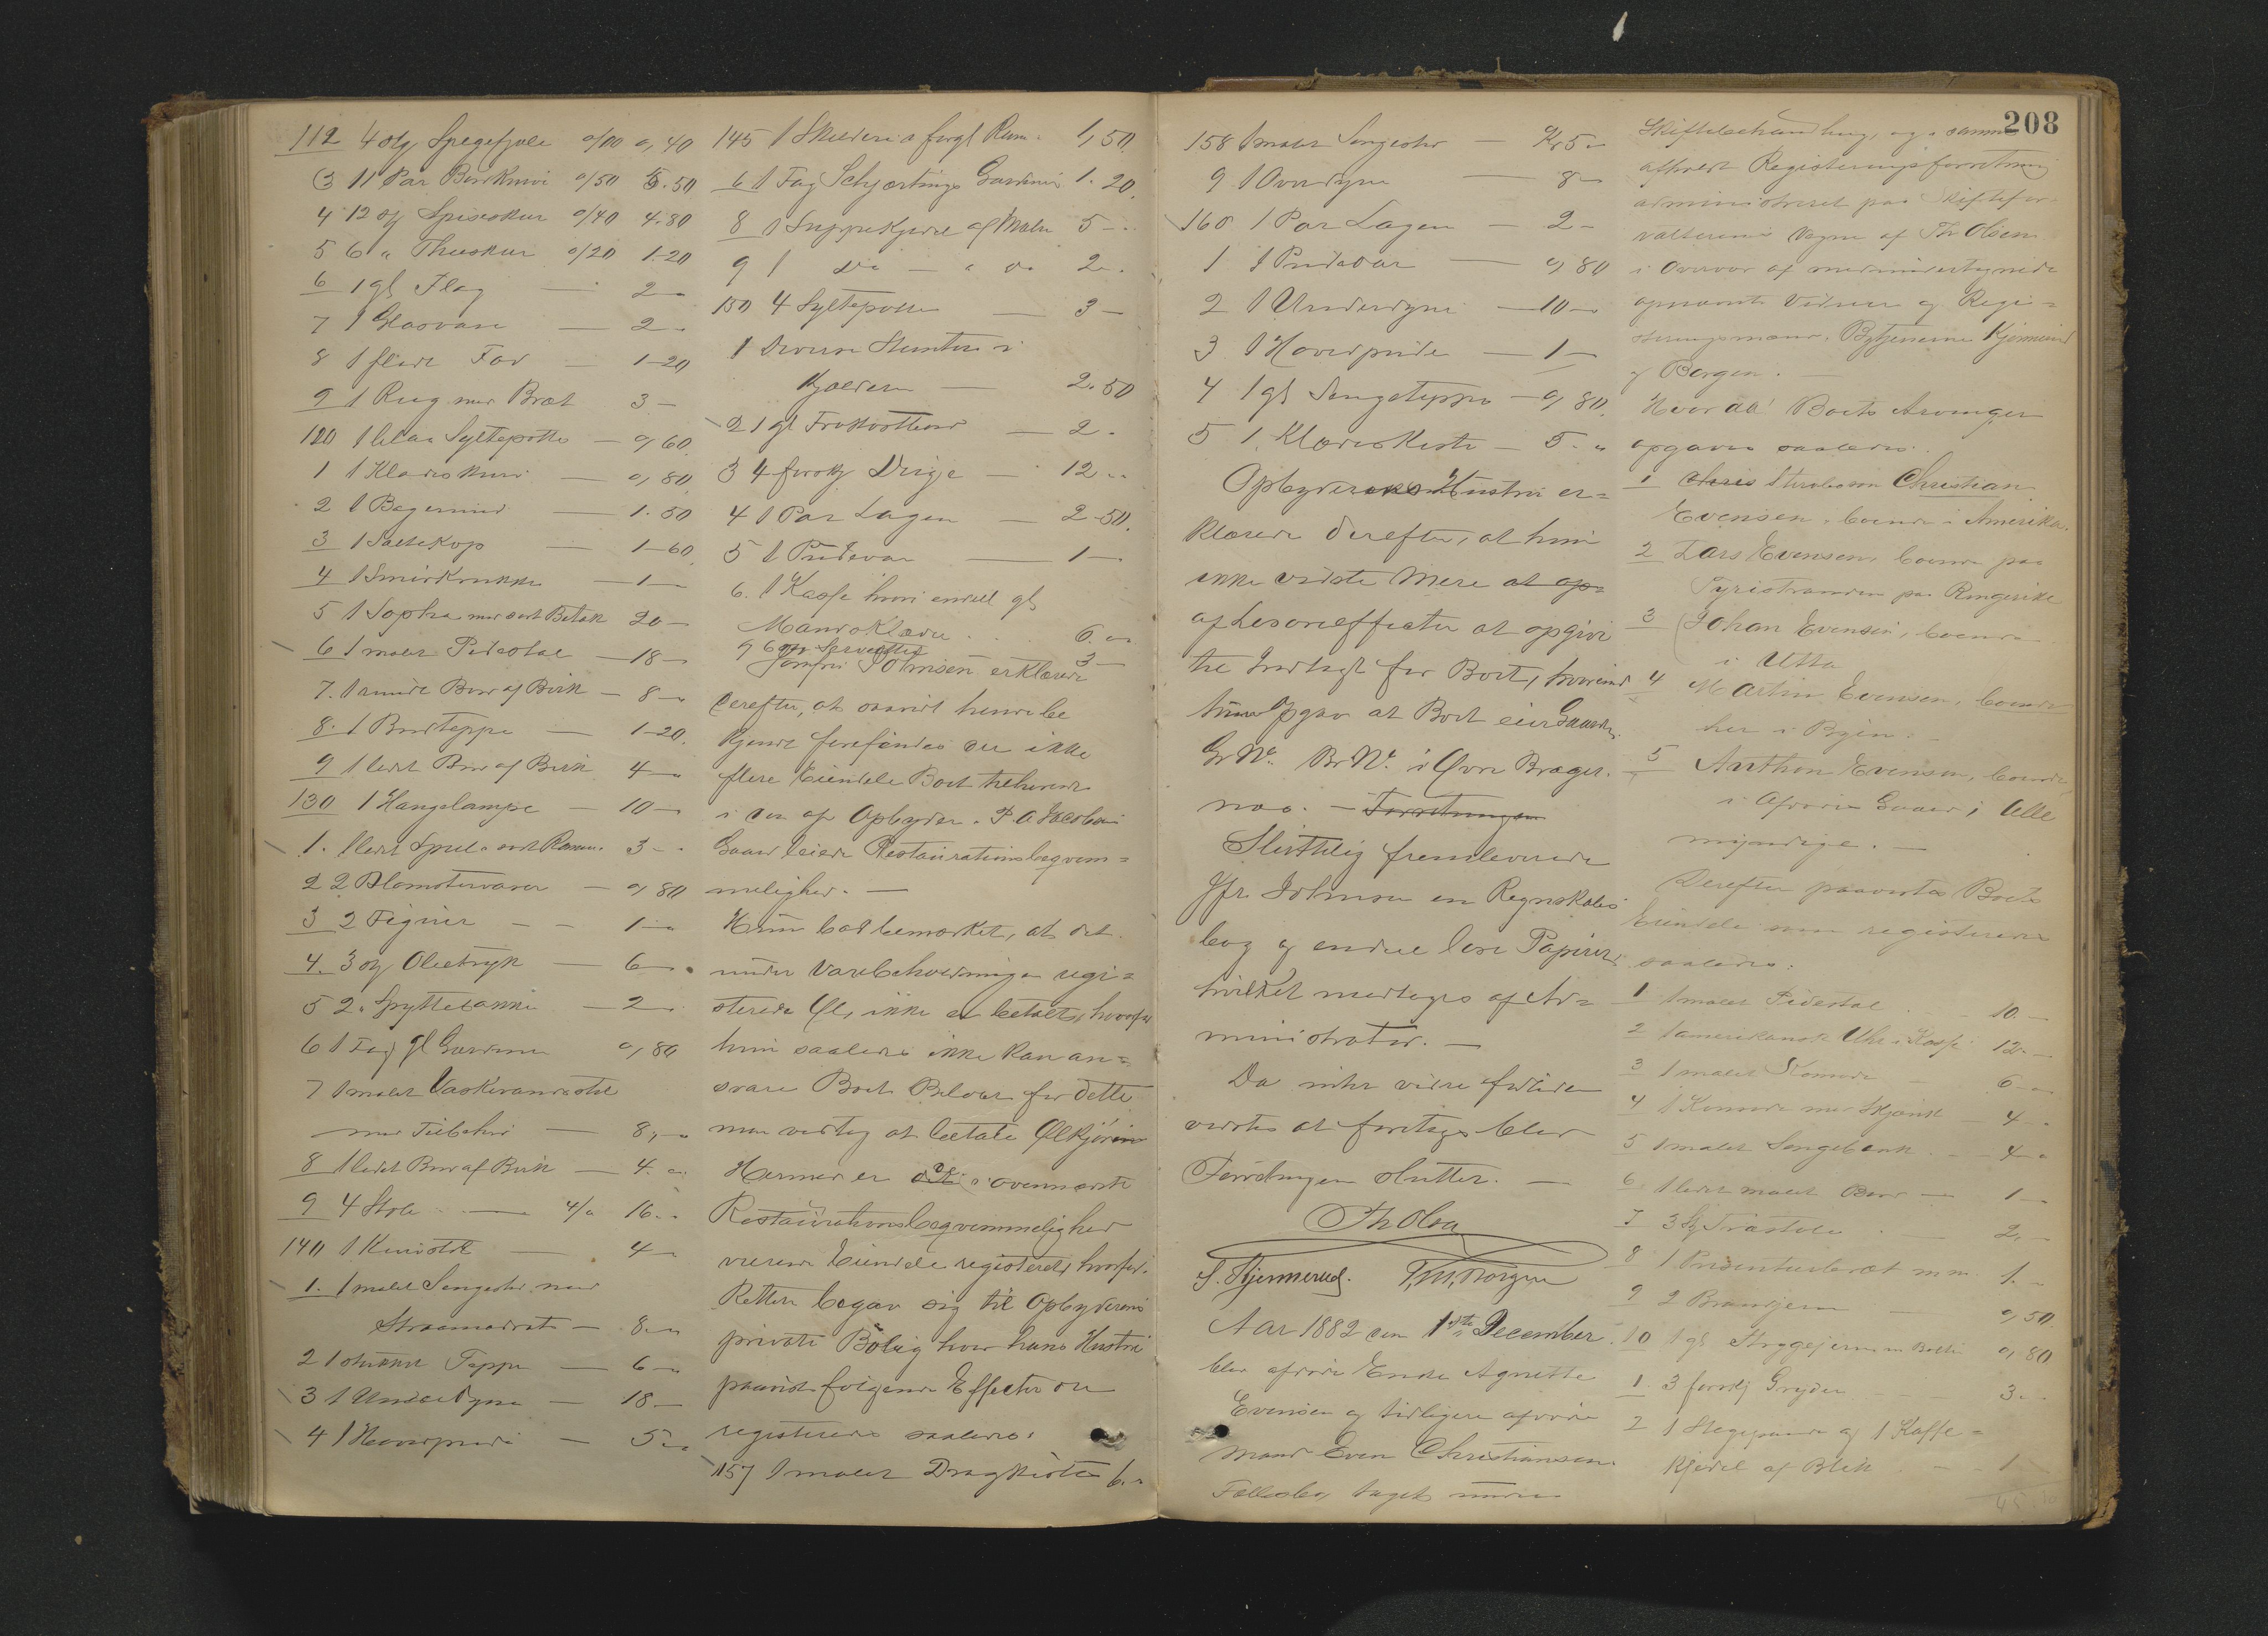 112 4 stg Spegefjæle a/10 0,40
3 11 Par Bordknive a/50 5.50
4 12 stg Spiseskeer a/40 4.80
5 6 " Theeskeer a/20 1.20
6 1 gl Flag — 2 —
7 1 Glasvase — 2 —
8 1 Fad — 1-20
9 1 Rug med Bræt 3 —
120 1 blaa Syltepotte — 0,60
1 1 Klædeskurv — 0,80
2 1 — 1.50
3 1 Saltekop — 1-60
4 1 Smørkrukke — 1 —
5 1 Sopha med sort Betræk 20 —
6 1 malet Pidestal — 18 —
7. 1 rundt Bord af Birk — 8 —
8. 1 Bordteppe — 1-20
9 1 lidet Bord af Birk 4 —
130 1 Hængelampe — 10 —
1. 1 lidet Speil i sort Ramme 3 —
2 2 Blomstervaser — 0,80
3 2 Figurer — 1 —
4. 3 stg Olietryk — 6 —
5 2 " Spyttebakker — 2
6 1 Fag gl Gardiner 0,80
7 1 malet Vaskevandsstol
med Tilbehør — 8,—
8 1 lidet Bord af Birk — 4. "
9 4 Stole — 4/" 16. "
140 1 Kurvstol — 4 —
1. 1 malet Sengested med
Straamadrats — 8. "
2 1 strikket Teppe — 6 —
3 1 Underdyne — 18 —
4 1 Hovedpude — 5 "
145 1 Skilderi i forgl Ram. 1,50
6 1 Fag Schjærtings Gardiner 1.20
8 1 Suppekjedel af Malm 5 —
9 1 do — " do 2 "
150 4 Syltepotter — 3 —
1 Diverse i
Kjælderen — 2.50
2 1 gl Frokostbord — 2 -
3 4 forskj Duge — 12 "
4 1 Par Lagen — 2-50
5 1 Pudevar — 1 —
6. 1 Kasse hvori endel gl
Mandsklæder 6 "
9 6 Servietter 3 —
Jomfru Johnsen erklærede
derefter, at saavidt hende be
kjendt forefindes der ikke
flere Eiendele Boet tilhørende
i den af Opbyder P. A. Jacobsens
Gaard leiede Restaurationsbeqvem=
melighed. —
Hun bad bemærket, at det
under Varebeholdningen regi=
sterede Øl, ikke er betalt, hvorfor
hun saaledes ikke kan an=
svare Boet Beløbet for dette
men vedtog at betale Ølkjøren
Hermed er de i ovennævnte
Restaurationsbeqvemmelighed
værende Eiendele registeret, hvorfor
Retten begav sig til Opbyderens
private Bolig hvor hans Hustru
paaviste følgende Effecter der
registeredes saaledes:
157 1 malet Dragkiste 6. "
158 1 malet Sengested — Kr 5 "
9 1 Overdyne — 8 —
160 1 Par Lagen — 2 -
1 1 Pudevar — 0,80
2 1 Underdyne — 10 —
3 1 Hovedpude — 1 —
4 1 gl Sengeteppe — 0,80
5 1 Klædeskiste — 5. "
Opbyderens Hustru er=
klærede derefter, at hun
ikke vidste mere at op=
af Løsøreeffecter at opgive
til Indtægt for Boet, hvorimod
hun opgav at Boet eier Gaarden
Gr No. Br No. i Øvre Brager=
næs. — Forretningen
Sluttelig fremleverede
Jfr Johnsen en Regnskabs
bog og endeel løse Papirer
hvilket modtoges af Ad=
ministrator. —
Da intet videre fortiden
vidstes at foretage blev
Forretningen sluttet. —
Th Olsen
S. Kjernerud. T. M. Borgen
Aar 1882 den 1ste December
blev afdøde Enke Agnette
Evensen og tidligere afdøde
Mand Even Christiansens
Fællesbo, taget under
208
Skiftebehandling, og i samme
afholdt Registreringsforretning
administreret paa Skiftefor=
valterens Vegne af Th Olsen
i Overvær af medundertegnede
opnævnte Vidner og Regi=
streringsmænd, Bytjenerne Kjernerud
og Borgen. —
Hvorda Boets Arvinger
opgaves saaledes.
1 Chris Christian
Evensen, boende i Amerika.
2 Lars Evensen, boende paa
Tyristranden paa Ringerike
3 Johan Evensen, boende
i Utta
4 Martin Evensen, boende
her i Byen. —
5 Anthon Evensen, boende
i Afdødes Gaard; Alle
myndige. —
Derefter paavistes Boets
Eiendele som registeredes
saaledes:
1 1 malet Pidestal 10. —
2 1 amerikansk Uhr i Kasse 12. —
3 1 malet Komode 6 —
4 1 Komode med Skjænk — 4 -
5 1 malet Sengebænk — 4 "
6 1 lidet malet Bord — 1 —
7 3 stg Træstole — 2. —
8 1 m.m. 1. —
9 2 — 0,50
10 1 gl Strygejern m Bolte 0,80
1 3 forskj Gryder 3. —
2 1 Stegepande og 1 Kaffe=
kjedel af Blik 1